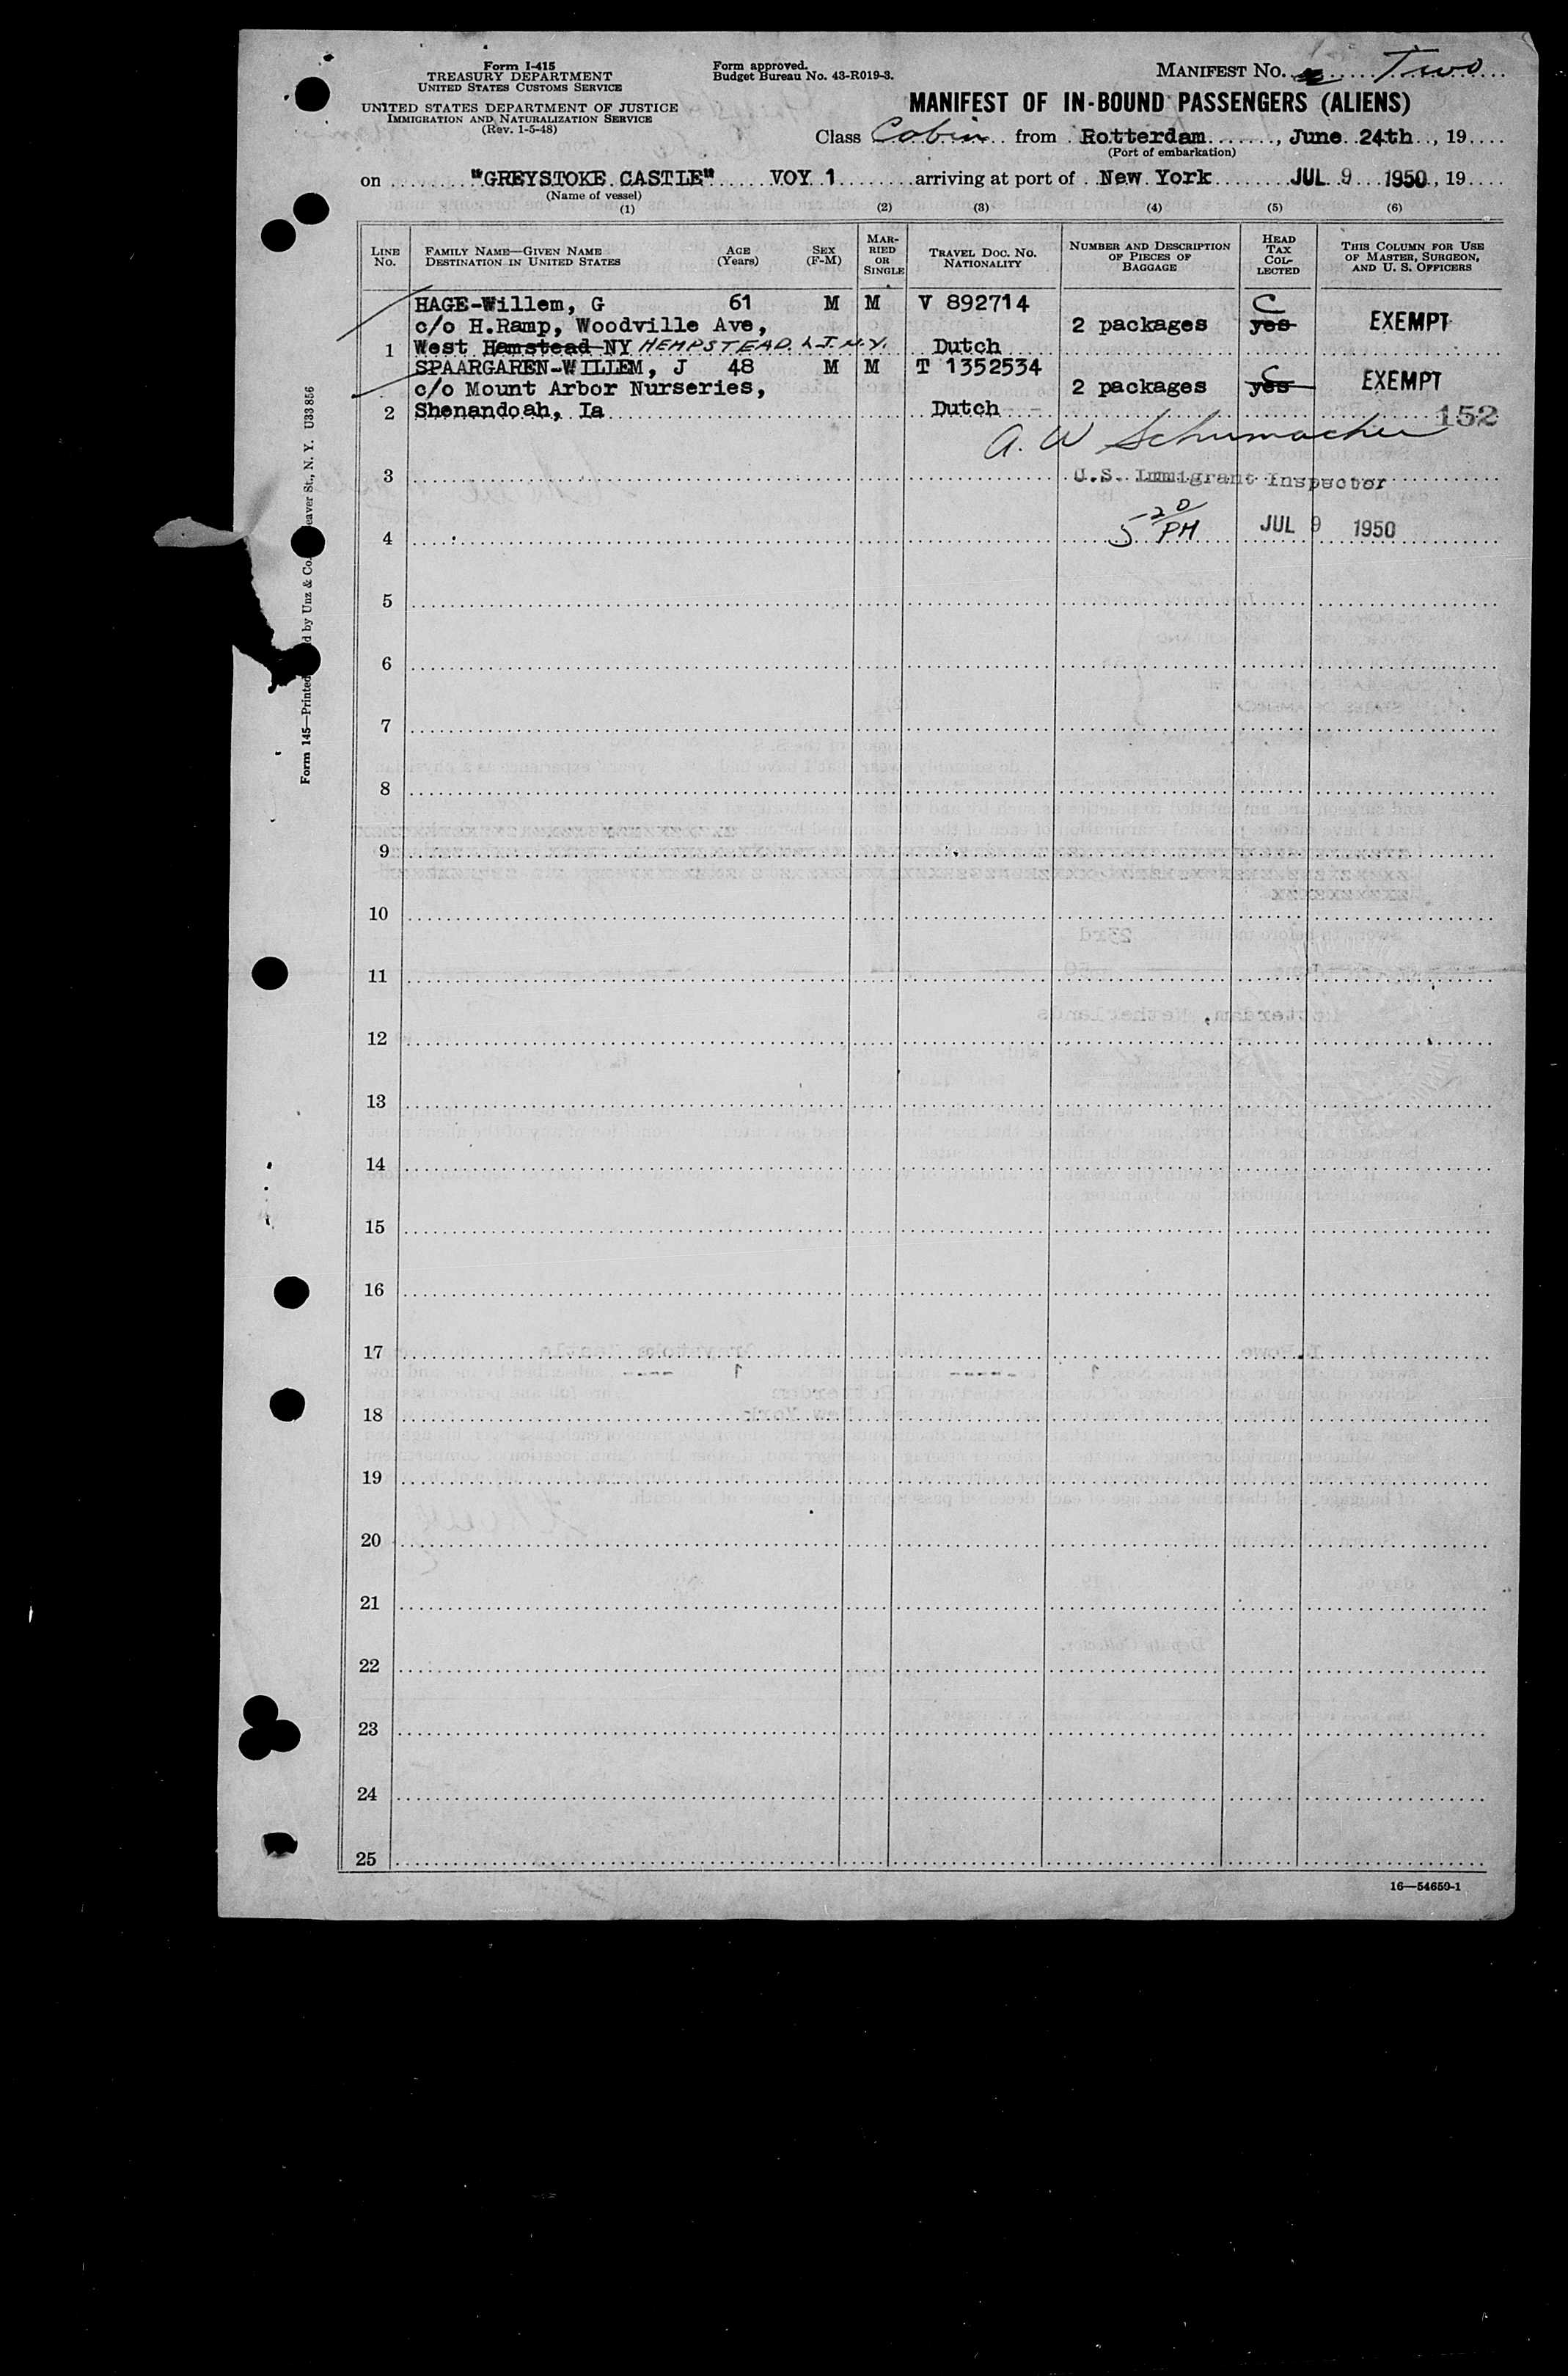 Form I-415
TREASURY DEPARTMENT
UNITED STATES CUSTOMS SERVICE
UNITED STATES DEPARTMENT OF JUSTICE
IMMIGRATION AND NATURALIZATION SERVICE
(Rev. 1-5-48)
Form approved.
Budget Bureau No. 43-R019-3.
MANIFEST NO. Two
MANIFEST OF IN-BOUND PASSENGERS (ALIENS)
Class Cabin from Rotterdam, June 24th, 19
(Port of embarkation)
on "GREYSTOKE CASTLE" VOY 1 arriving at port of New York JUL 9 1950, 19
(Name of vessel)
(1) (2) (3) (4) (5) (6)
LINE NO. FAMILY NAME—GIVEN NAME DESTINATION IN UNITED STATES AGE (Years) SEX (F-M) MARRIED OR SINGLE TRAVEL DOC. NO. NATIONALITY NUMBER AND DESCRIPTION OF PIECES OF BAGGAGE HEAD TAX COLLECTED THIS COLUMN FOR USE OF MASTER, SURGEON, AND U. S. OFFICERS
HAGE-Willem, G 61 M M V 892714 C
c/o H.Ramp, Woodville Ave, 2 packages yes EXEMPT
1 West Hemstead NY HEMPSTEAD L.I.N.Y. Dutch
SPAARGAREN-WILLEM, J 48 M M T 1352534 C
c/o Mount Arbor Nurseries, 2 packages yes EXEMPT
2 Shenandoah, Ia Dutch 152
A. W Schumacher
3 U.S. Immigrant Inspector
4 5-20 PM JUL 9 1950
5
6
7
8
9
10
11
12
13
14
15
16
17
18
19
20
21
22
23
24
25
16—54659-1
Form 145—Printed d by Unz & Co. eaver St., N. Y. U33856